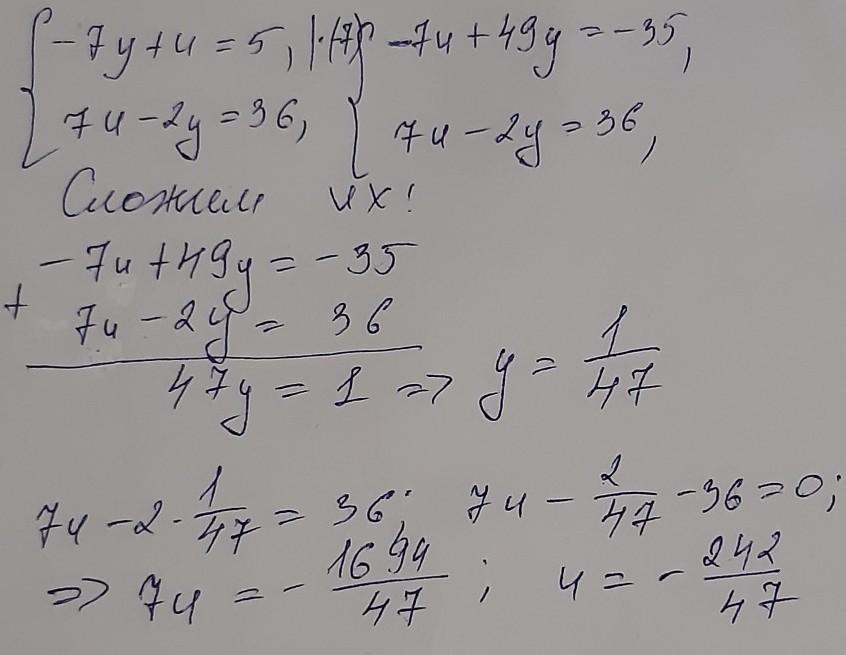 -7y+u=5, |·(-7) -7u+49y=-35,
7u-2y=36, 7u-2y=36,
Сложим их!
-7u+49y=-35
+ 7u-2y= 36
47y=1 => y=1/47
7u-2·1/47=36; 7u-2/47-36=0;
=> 7u=-1694/47; u=-242/47